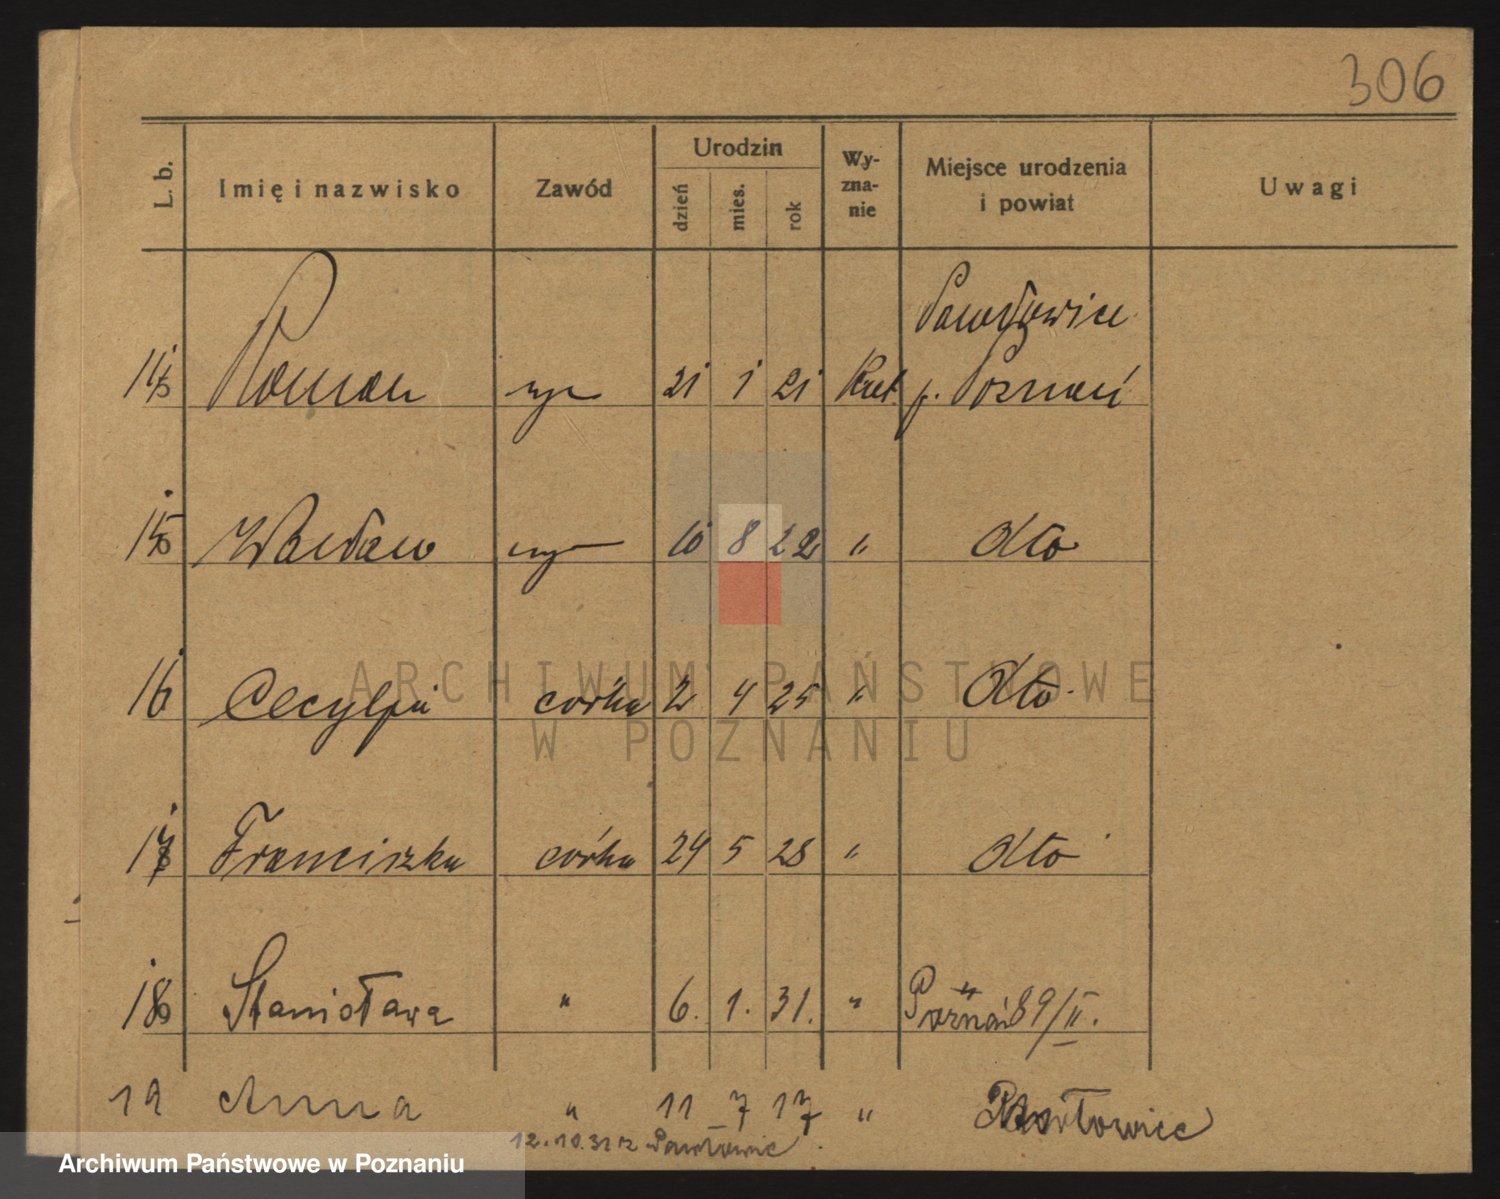 306
L. b. Imię i nazwisko Zawód Urodzin dzień mies. rok Wy-zna-nie Miejsce urodzenia i powiat Uwagi
Pawłowice
14 Roman syn 21 1 21 Kat. p. Poznań
15 Wacław syn 10 8 22 " dto
16 Cecylja córka 2 4 25 " dto
ARCHIWUM PAŃSTWOWE
W POZNANIU
17 Franciszka córka 24 5 28 " dto
18 Stanisława " 6. 1. 31. " Poznań 89/II.
19 Anna " 11 7 17 " Pawłowice
12.10.31 z Pawłowic
Archiwum Państwowe w Poznaniu